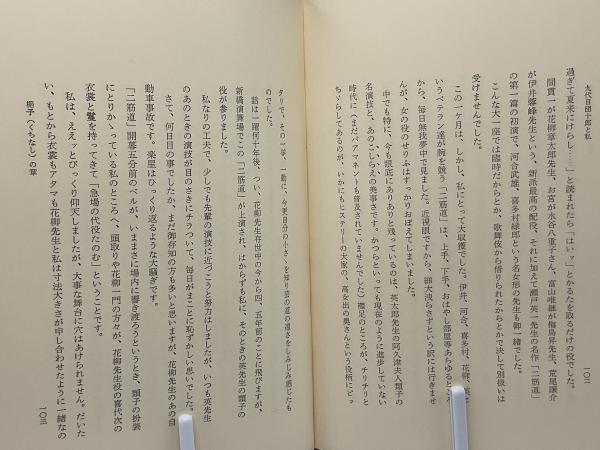 九代目団十郎と私
一〇二
過ぎて夏来にけらし……」と読まれたら「はいッ」とかるたを取るだけの役でした。
間貫一が花柳章太郎先生、お宮が水谷八重子さん、富山唯継が梅島昇先生、荒尾譲介
が伊井蓉峰先生という、新派最高の配役、それに加えて瀬戸英一先生の名作「二筋道」
の第一篇の初演で、河合武雄、喜多村緑郎という名女形の先生も御一緒でした。
こんな大一座では臨時だからとか、歌舞伎から借りられたからとかで決して別扱いは
受けませんでした。
この一ケ月は、しかし、私にとって大収穫でした。伊井、河合、喜多村、花柳、英と
いうベテラン達が腕を競う「二筋道」は、上手、下手、おはやし部屋等あらゆるところ
から、毎日無我夢中で見ました。近視眼ですから、細大洩らさずという訳には行きませ
んが、女の役のせりふはすっかりおぼえてしまいました。
中でも特に、今も眼底にありありと残っているのは、英太郎先生の阿久津夫人類子の
名演技と、あのこしらえの美事さです。かつらといっても現在のように進歩していない
時代に（まだパアマネントも普及されていませんでした）襟足のところが、チリチリと
ちぢらしてあるのが、いかにもヒステリーの大家の、高女出の奥さんという役柄にピッ
タリで、その一挙、一動に、今更自分の小さゝを知り芸の道の遠さをしみじみ感じたも
のでした。
話は一躍何十年後、つい、花柳先生存世中の今から四、五年前のことに飛びますが、
新橋演舞場でこの「二筋道」が上演され、はからずも私に、そのときの英先生の類子の
役が参りました。
私なりの工夫で、少しでも先輩の演技に近づこうと努力はしましたが、いつも英先生
のあのときの演技が目のさきにチラついて、毎日がまことに恥ずかしい思いでした。
さて、何日目の事でしたか、まだ御存知の方も多いと思いますが、花柳先生のあの自
動車事故です。楽屋はひっくり返るような大騒ぎです。
「二筋道」開幕五分前のベルが、いままさに場内に響き渡ろうというとき、類子の扮装
にとりかゝっている私のところへ、頭取りや花柳一門の方々が、花柳先生役の喜代次の
衣裳と鬘を持ってきて「急場の代役たのむ」ということです。
私は、ええッとびっくり仰天しましたが、大事な舞台に穴はあけられません。だいた
い、もとから衣裳もアタマも花柳先生と私は寸法大きさが申し合わせたように一緒なの
梔子（くちなし）の章
一〇三